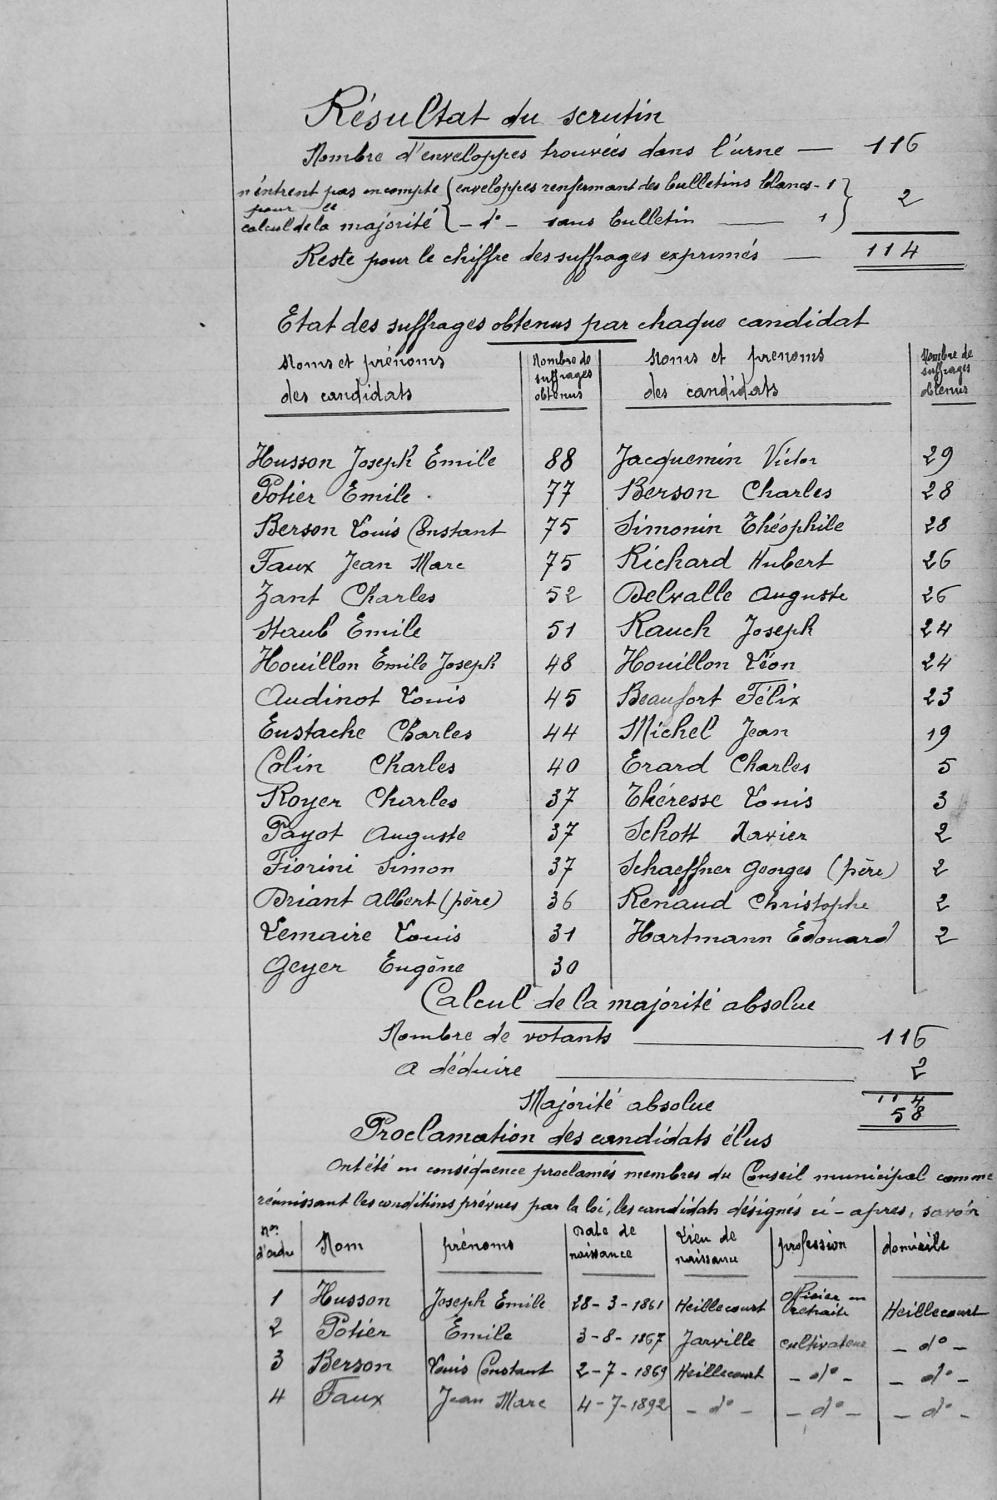 Résultat du scrutin
Nombre d'enveloppes trouvées dans l'urne — 116
n'entrent pas en compte { enveloppes renfermant des bulletins blancs - 1 } 2
pour le
calcul de la majorité { - d° - sans bulletin — 1 }
Reste pour le chiffre des suffrages exprimés — 114
Etat des suffrages obtenus par chaque candidat
Noms et prénoms des candidats | Nombre de suffrages obtenus | Noms et prenoms des candidats | Nombre de suffrages obtenus
Husson Joseph Emile 88 Jacquemin Victor 29
Potier Emile 77 Berson Charles 28
Berson Louis Constant 75 Simonin Théophile 28
Faux Jean Marc 75 Richard Hubert 26
Zant Charles 52 Delvalle Auguste 26
Staub Emile 51 Rauch Joseph 24
Houillon Emile Joseph 48 Houillon Léon 24
Audinot Louis 45 Beaufort Félix 23
Eustache Charles 44 Michel Jean 19
Colin Charles 40 Erard Charles 5
Royer Charles 37 Théresse Louis 3
Payot Auguste 37 Schott Xavier 2
Fiorini Simon 37 Schaeffner Georges (père) 2
Briant Albert (père) 36 Renaud Christophe 2
Lemaire Louis 31 Hartmann Edouard 2
Geyer Eugène 30
Calcul de la majorité absolue
Nombre de votants — 116
A déduire — 2
114
Majorité absolue 58
Proclamation des candidats élus
Ont été en conséquence proclamés membres du Conseil municipal comme
réunissant les conditions prévues par la loi, les candidats désignés ci-après, savoir
Nos d'ordre | Nom | prénoms | Date de naissance | Lieu de naissance | profession | domicile
1 Husson Joseph Emile 28-3-1861 Heillecourt officier en retraite Heillecourt
2 Potier Emile 3-8-1867 Jarville cultivateur - d° -
3 Berson Louis Constant 2-7-1869 Heillecourt - d° - - d° -
4 Faux Jean Marc 4-7-1892 - d° - - d° - - d° -